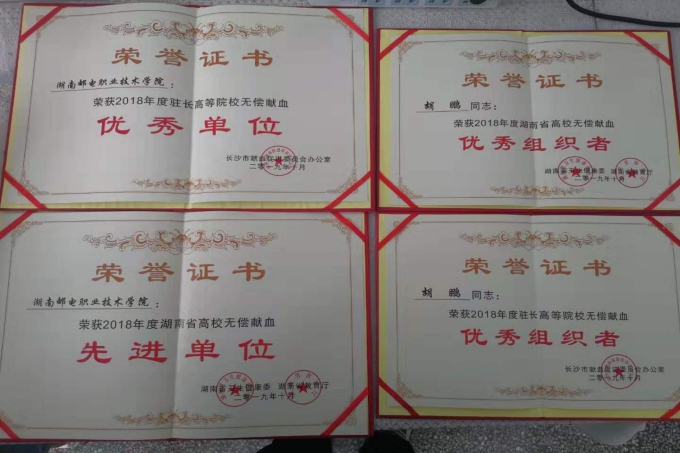 荣誉证书
湖南邮电职业技术学院：
荣获2018年度驻长高等院校无偿献血
优秀单位
长沙市献血促进委员会办公室
二〇一九年十月
荣誉证书
胡鹏 同志：
荣获2018年度湖南省高校无偿献血
优秀组织者
湖南省卫生健康委 湖南省教育厅
二〇一九年十月
荣誉证书
湖南邮电职业技术学院：
荣获2018年度湖南省高校无偿献血
先进单位
湖南省卫生健康委 湖南省教育厅
二〇一九年十月
荣誉证书
胡鹏 同志：
荣获2018年度驻长高等院校无偿献血
优秀组织者
长沙市献血促进委员会办公室
二〇一九年十月